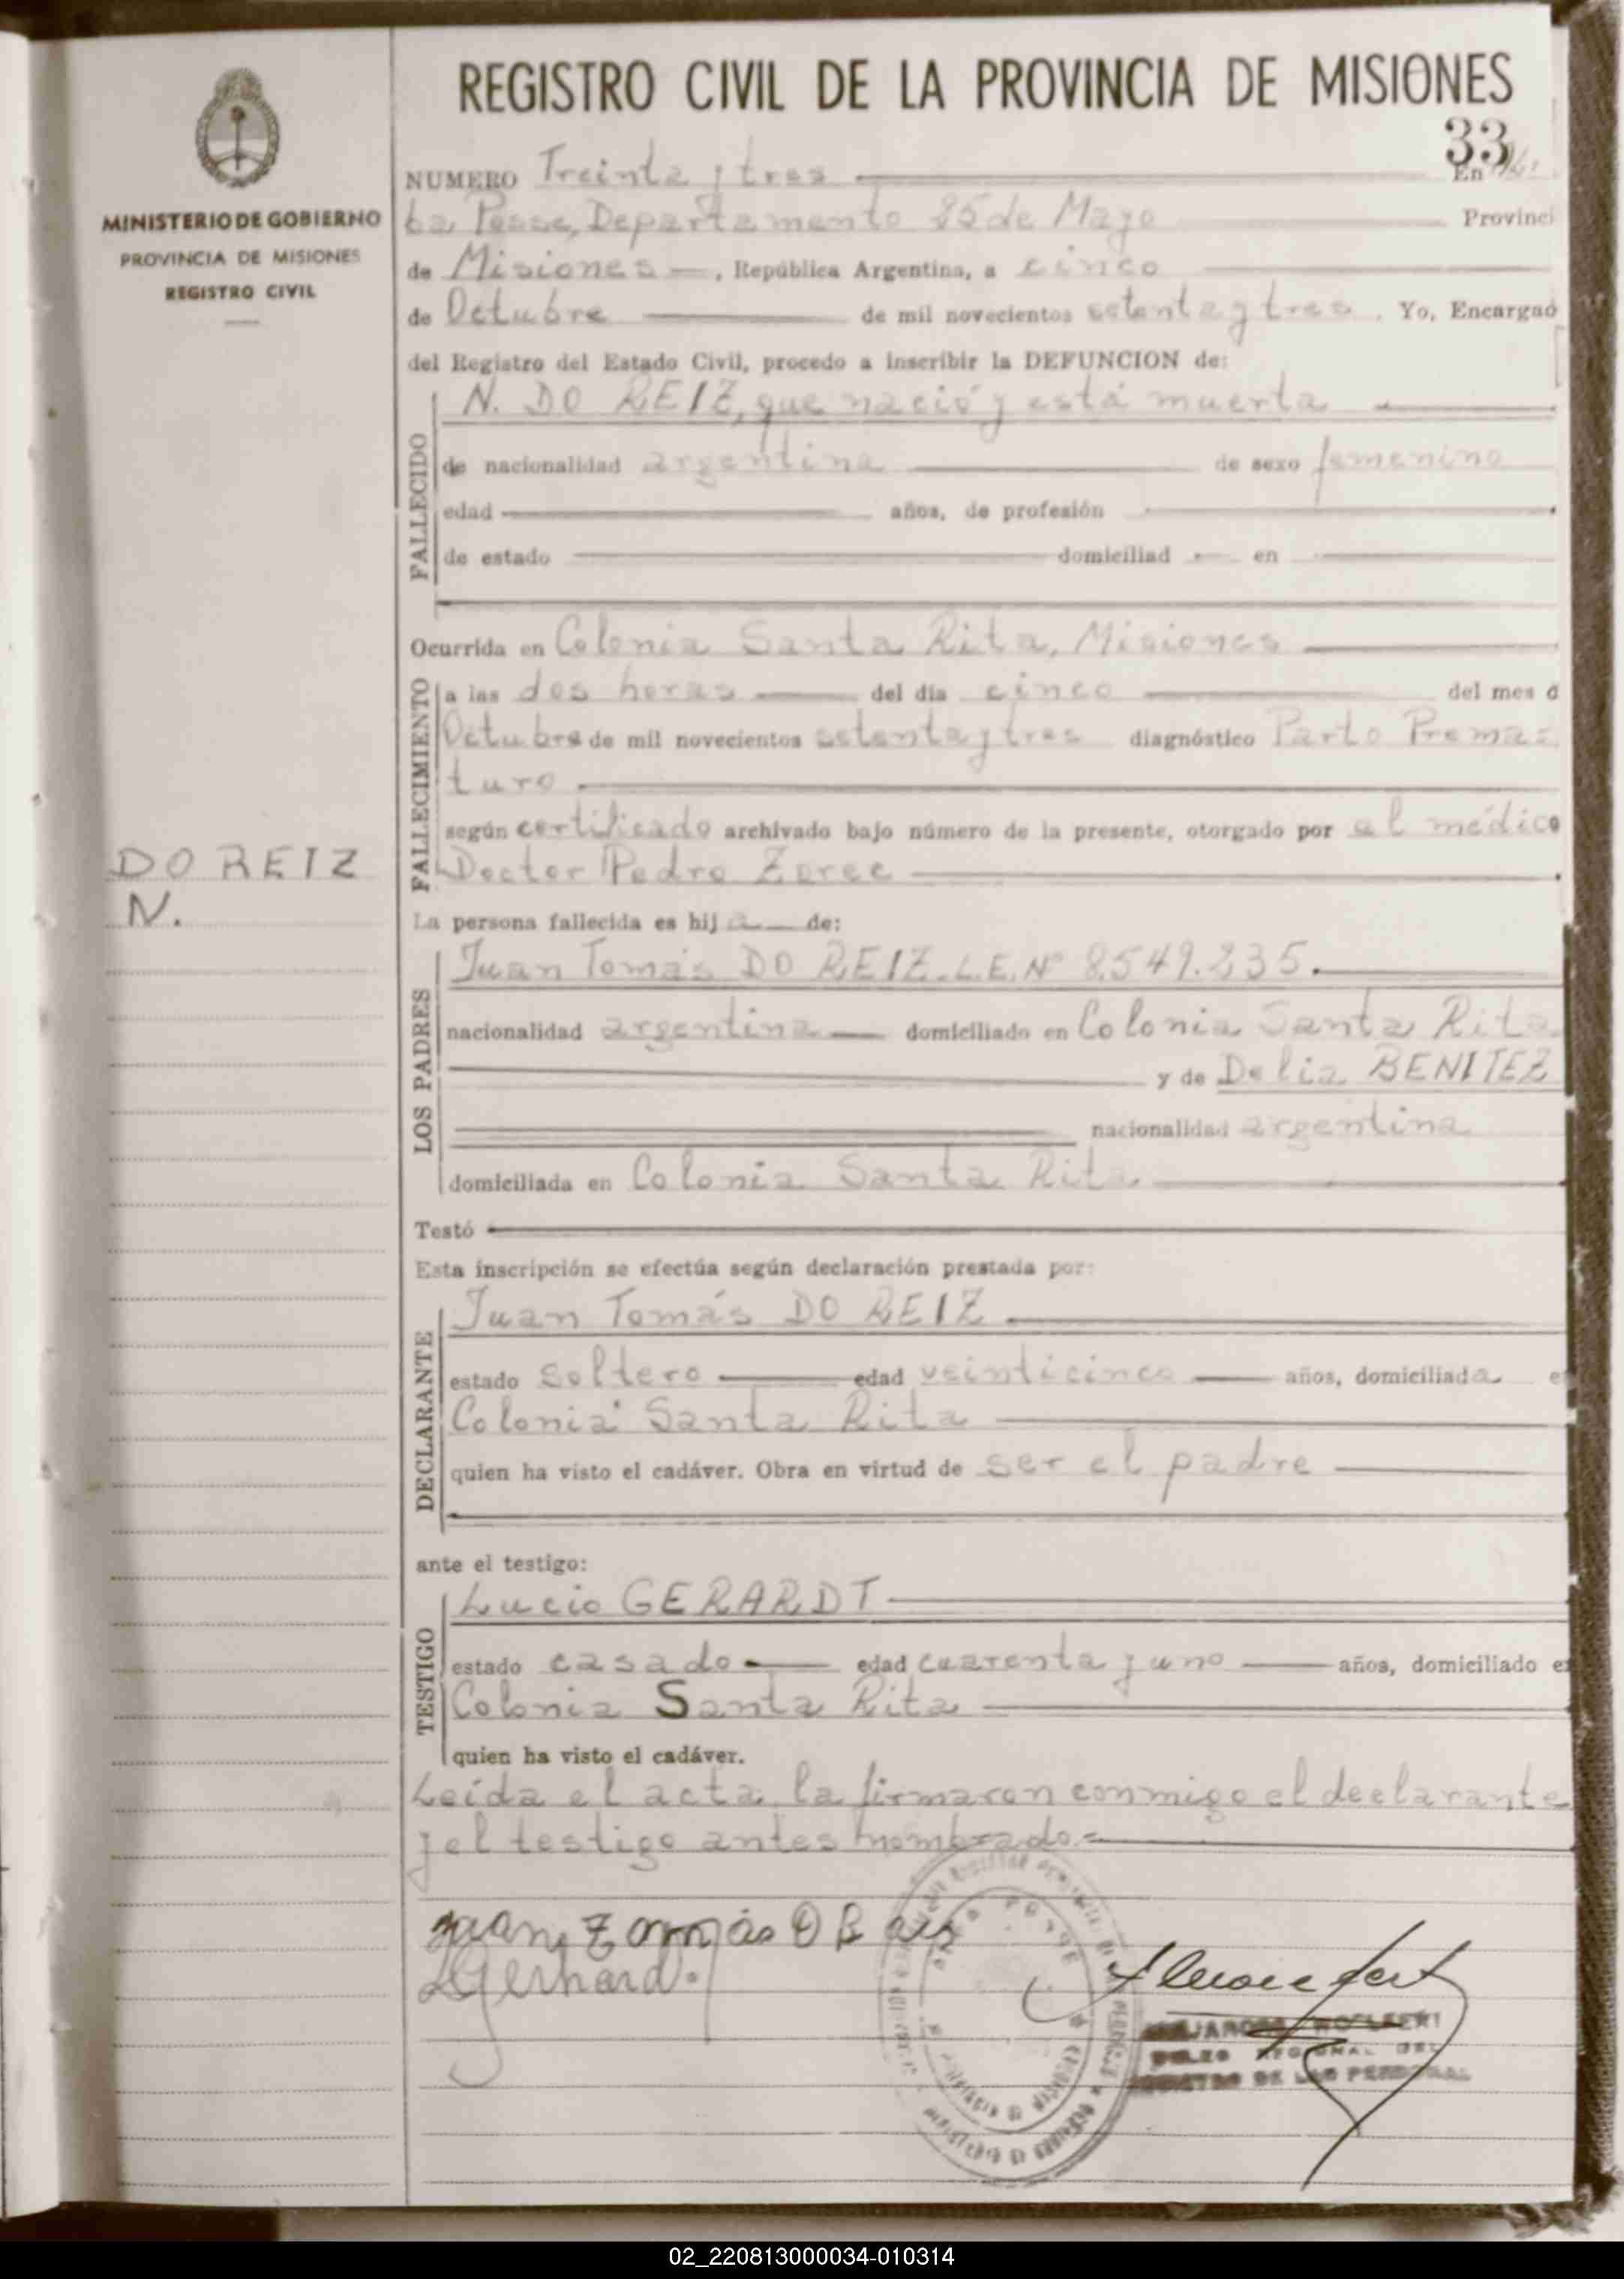 REGISTRO CIVIL DE LA PROVINCIA DE MISIONES
33
MINISTERIO DE GOBIERNO
PROVINCIA DE MISIONES
REGISTRO CIVIL
NUMERO Treinta y tres En
ba Posse, Departamento 25 de Mayo Provinci
de Misiones, República Argentina, a cinco
de Octubre de mil novecientos setenta y tres. Yo, Encargad
del Registro del Estado Civil, procedo a inscribir la DEFUNCION de:
FALLECIDO
N. DO REIZ, que nació y está muerta
de nacionalidad argentina de sexo femenino
edad años, de profesión
de estado domiciliad en
Ocurrida en Colonia Santa Rita, Misiones
FALLECIMIENTO
a las dos horas del día cinco del mes d
Octubre de mil novecientos setenta y tres diagnóstico Parto Prema=
turo
según certificado archivado bajo número de la presente, otorgado por el médico
Doctor Pedro
DO REIZ
N.
La persona fallecida es hija de:
LOS PADRES
Juan Tomás DO REIZ. L.E. Nº 8.549.235.
nacionalidad argentina domiciliado en Colonia Santa Rita
y de Delia BENITEZ
nacionalidad argentina
domiciliada en Colonia Santa Rita
Testó
Esta inscripción se efectúa según declaración prestada por:
DECLARANTE
Juan Tomás DO REIZ
estado soltero edad veinticinco años, domiciliada e
Colonia Santa Rita
quien ha visto el cadáver. Obra en virtud de ser el padre
ante el testigo:
TESTIGO
Lucio GERARDT
estado casado edad cuarenta y uno años, domiciliado e
Colonia Santa Rita
quien ha visto el cadáver.
Leída el acta, la firmaron conmigo el declarante
y el testigo antes nombrado.=
02_220813000034-010314